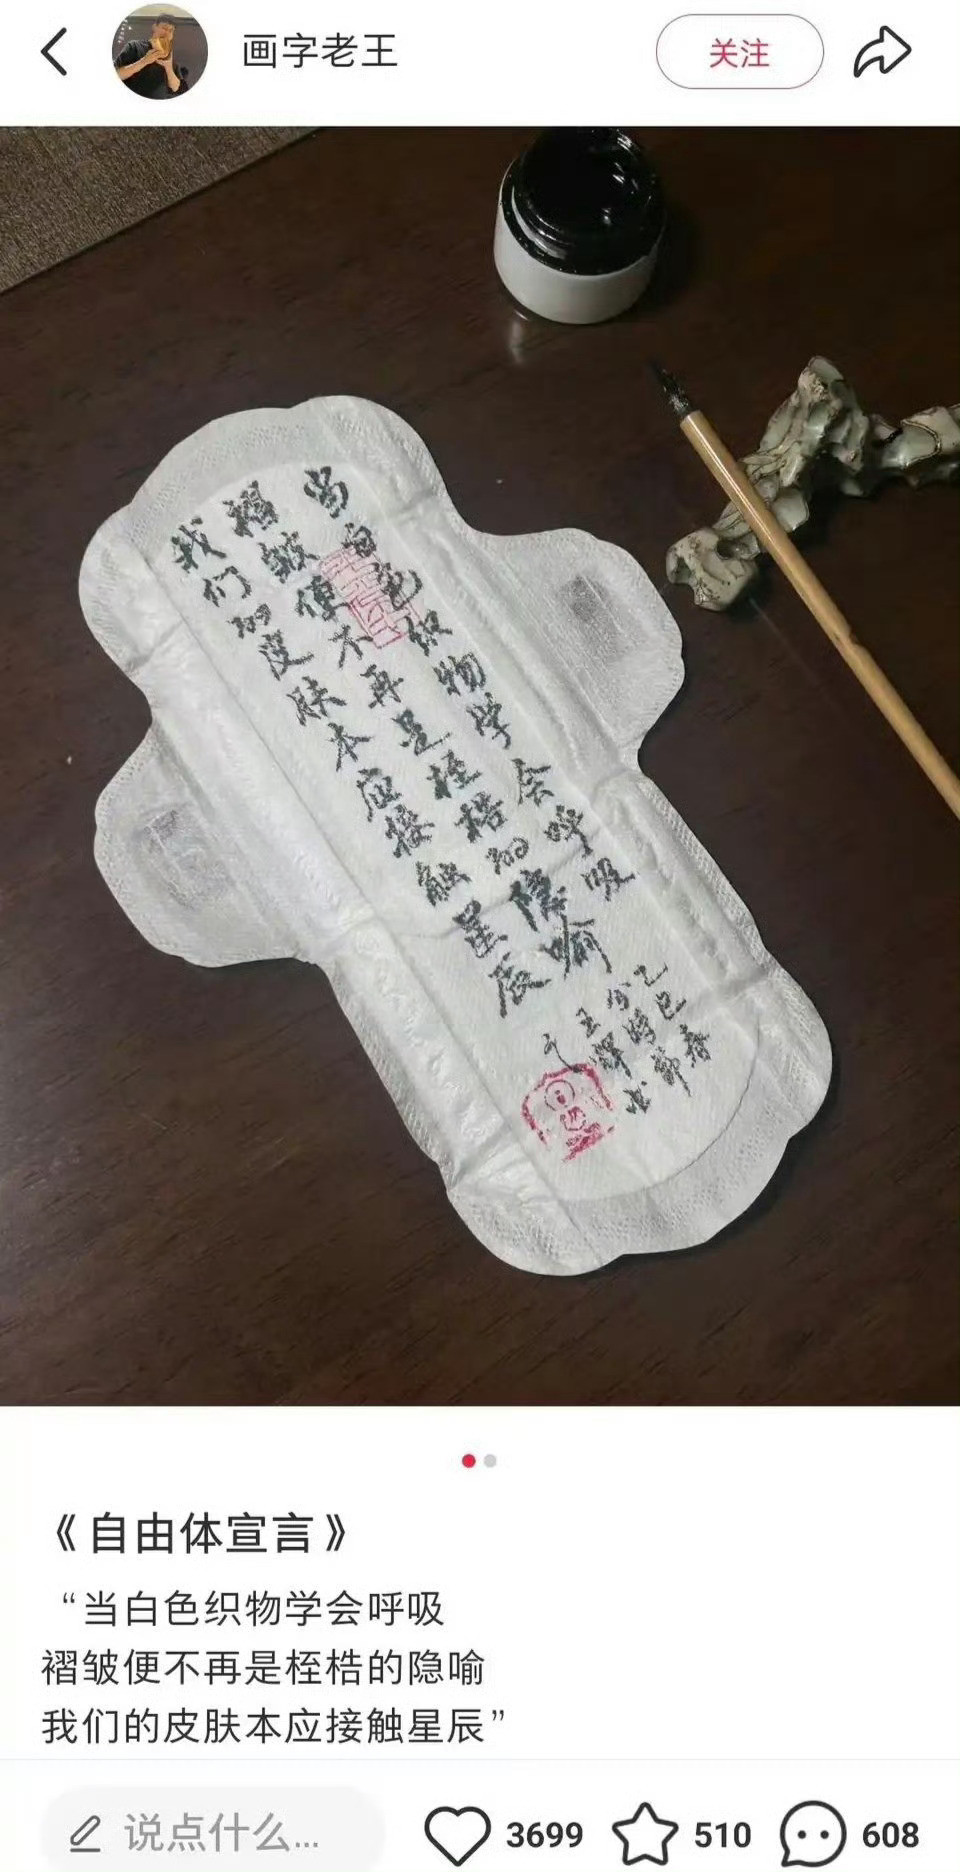 画字老王
关注
当白色织物学会呼吸
褶皱便不再是桎梏的隐喻
我们的皮肤本应接触星辰
乙巳春
王辉书
《自由体宣言》
“当白色织物学会呼吸
褶皱便不再是桎梏的隐喻
我们的皮肤本应接触星辰”
说点什么...
3699
510
608